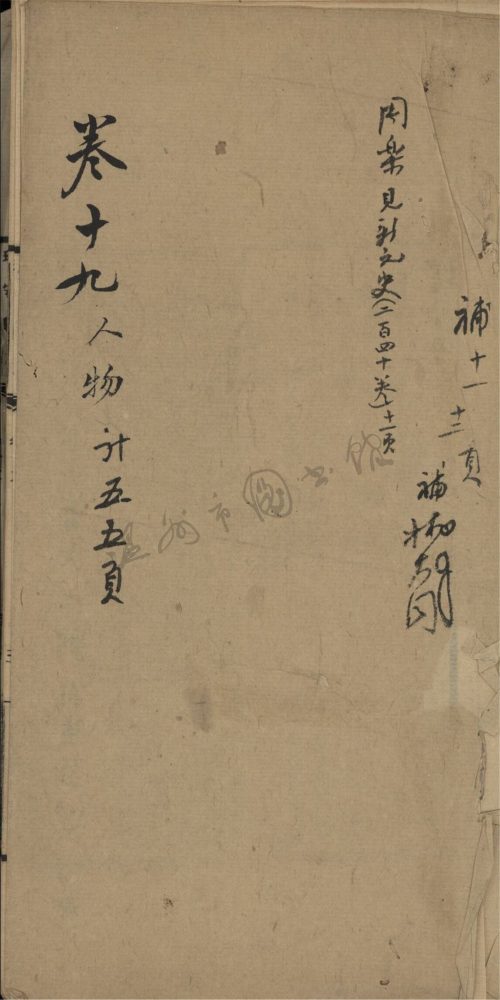 補十一 十二頁
補
周樂見新元史（二百四十卷）十一頁
卷十九 人物 計五五頁
温州市圖書館